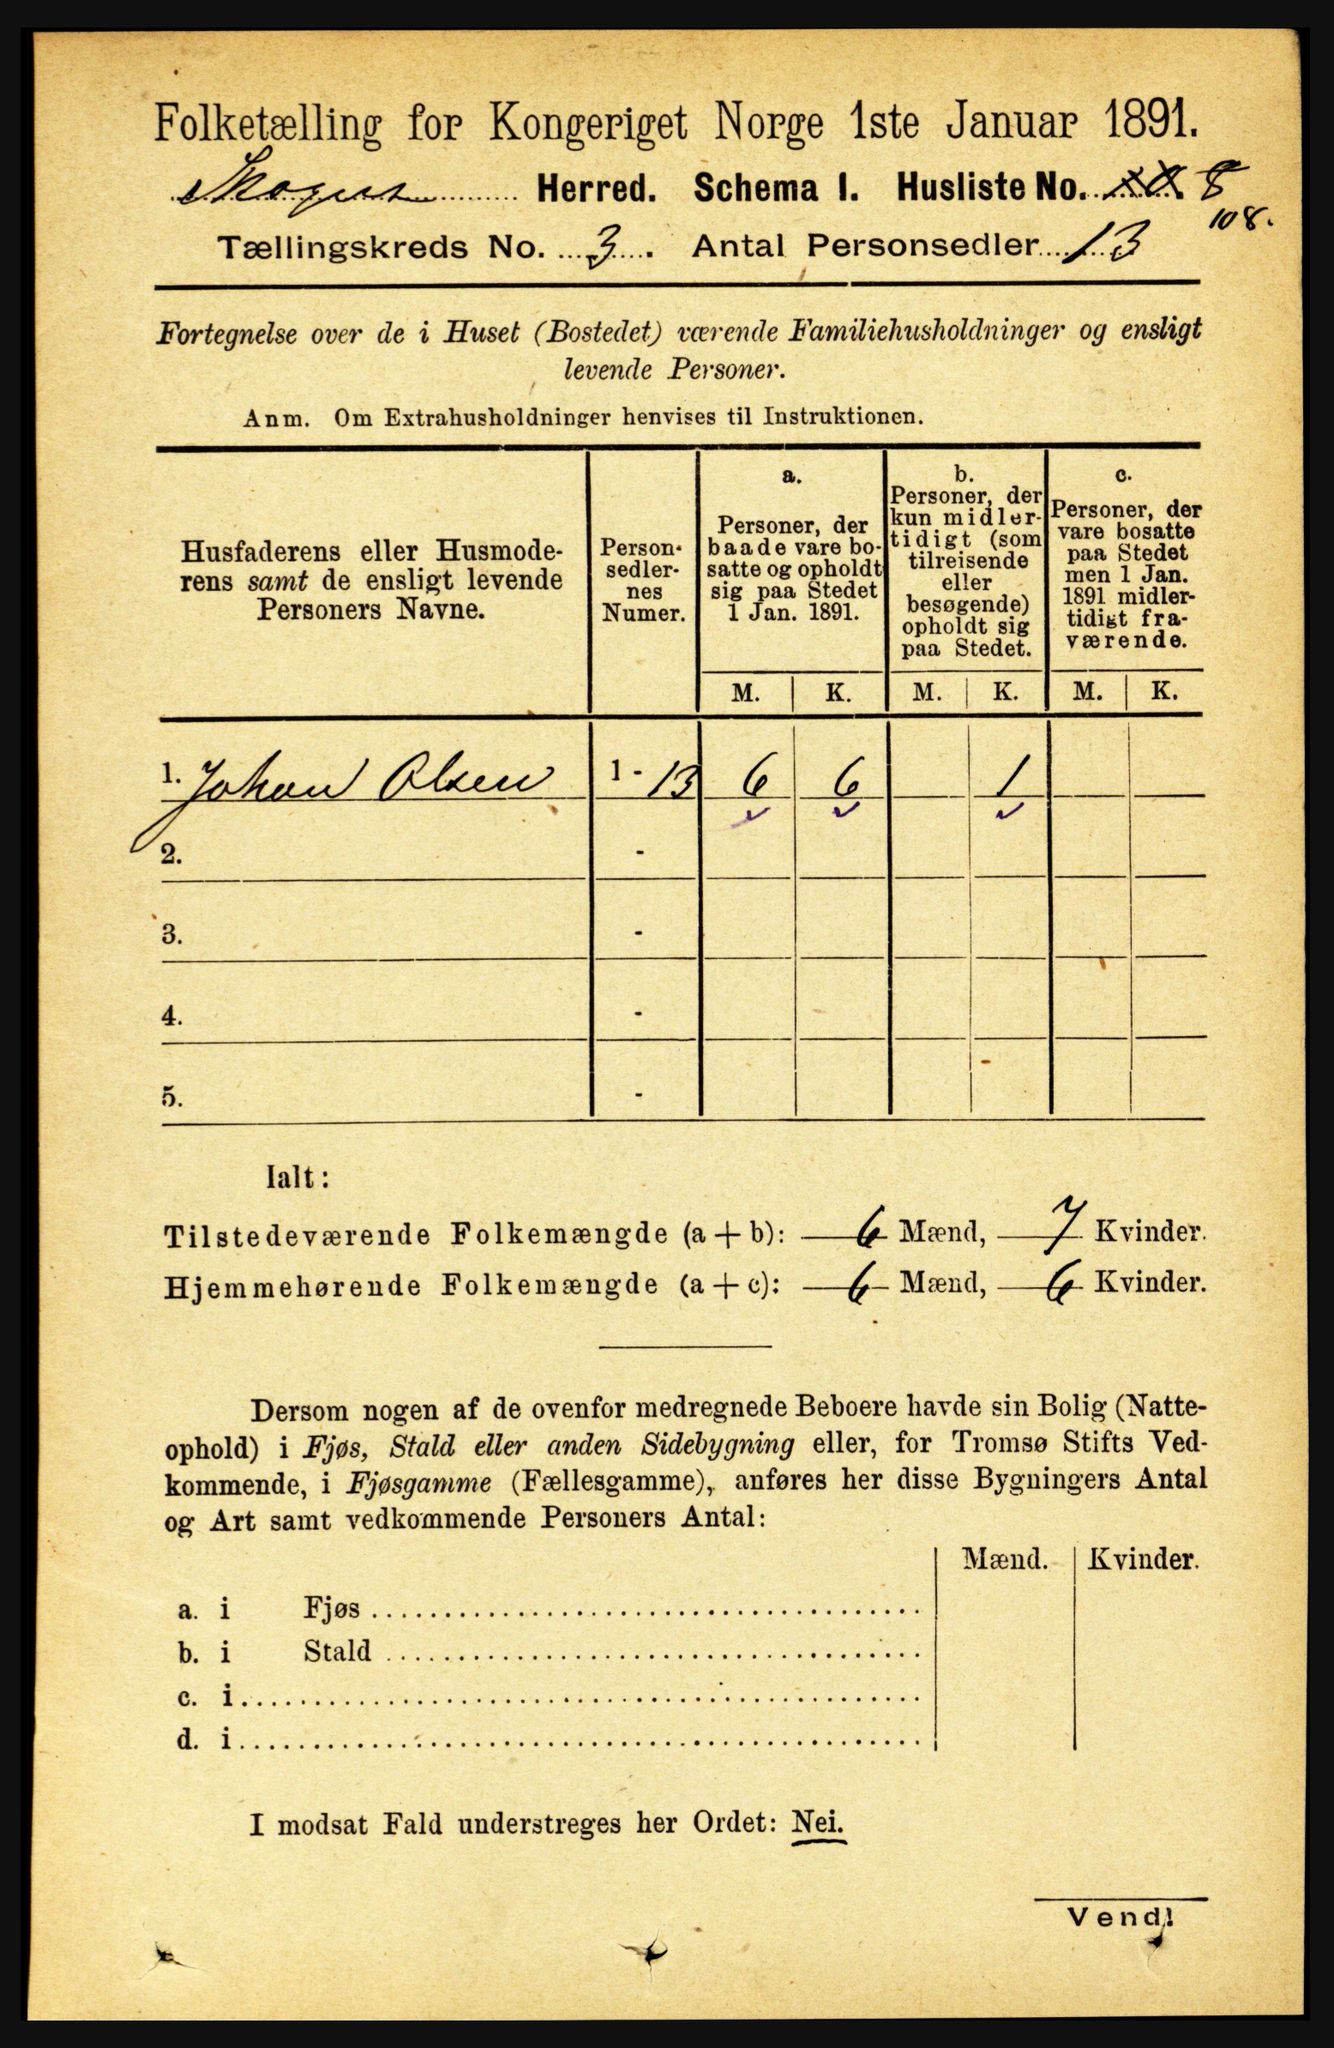 Folketælling for Kongeriget Norge 1ste Januar 1891.
Herred. Schema 1. Husliste No. 8
108.
Tællingskreds No. 3. Antal Personsedler 13
Fortegnelse over de i Huset (Bostedet) værende Familiehusholdninger og ensligt
levende Personer.
Anm. Om Extrahusholdninger henvises til Instruktionen.
Husfaderens eller Husmode-
rens samt de ensligt levende
Personers Navne.
Person-
sedler-
nes
Numer.
a.
Personer, der
baade vare bo-
satte og opholdt
sig paa Stedet
1 Jan. 1891.
b.
Personer, der
kun midler-
tidigt (som
tilreisende
eller
besøgende)
opholdt sig
paa Stedet.
c.
Personer, der
vare bosatte
paa Stedet
men 1 Jan.
1891 midler-
tidigt fra-
værende.
M. K. M. K. M. K.
1. Johan Olsen 1 - 13 6 6 1
2. -
3. -
4. -
5. -
Ialt:
Tilstedeværende Folkemængde (a + b): 6 Mænd, 7 Kvinder.
Hjemmehørende Folkemængde (a + c): 6 Mænd, 6 Kvinder.
Dersom nogen af de ovenfor medregnede Beboere havde sin Bolig (Natte-
ophold) i Fjøs, Stald eller anden Sidebygning eller, for Tromsø Stifts Ved-
kommende, i Fjøsgamme (Fællesgamme), anføres her disse Bygningers Antal
og Art samt vedkommende Personers Antal:
Mænd. Kvinder.
a. i Fjøs
b. i Stald
c. i
d. i
I modsat Fald understreges her Ordet: Nei.
Vend!